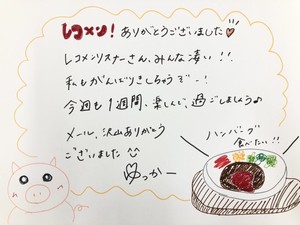 レコメン！ ありがとうございました♡
レコメンリスナーさん、みんな凄い！！
私もがんばりきしちゃうぞー！
今週も1週間、楽しんで、過ごしましょう♪
メール、沢山ありがとう
ございました^^
ゆっかー
ハンバーグ
食べたい！！